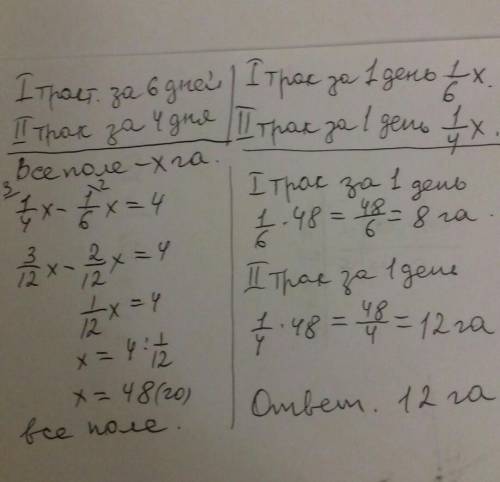 I тракт. за 6 дней
II трак за 4 дня
I трак за 1 день 1/6 x.
II трак за 1 день 1/4 x.
Все поле - x га.
3 1/4 x - 2 1/6 x = 4
3/12 x - 2/12 x = 4
1/12 x = 4
x = 4 : 1/12
x = 48 (га)
все поле.
I трак за 1 день
1/6 · 48 = 48/6 = 8 га.
II трак за 1 день
1/4 · 48 = 48/4 = 12 га
Ответ. 12 га